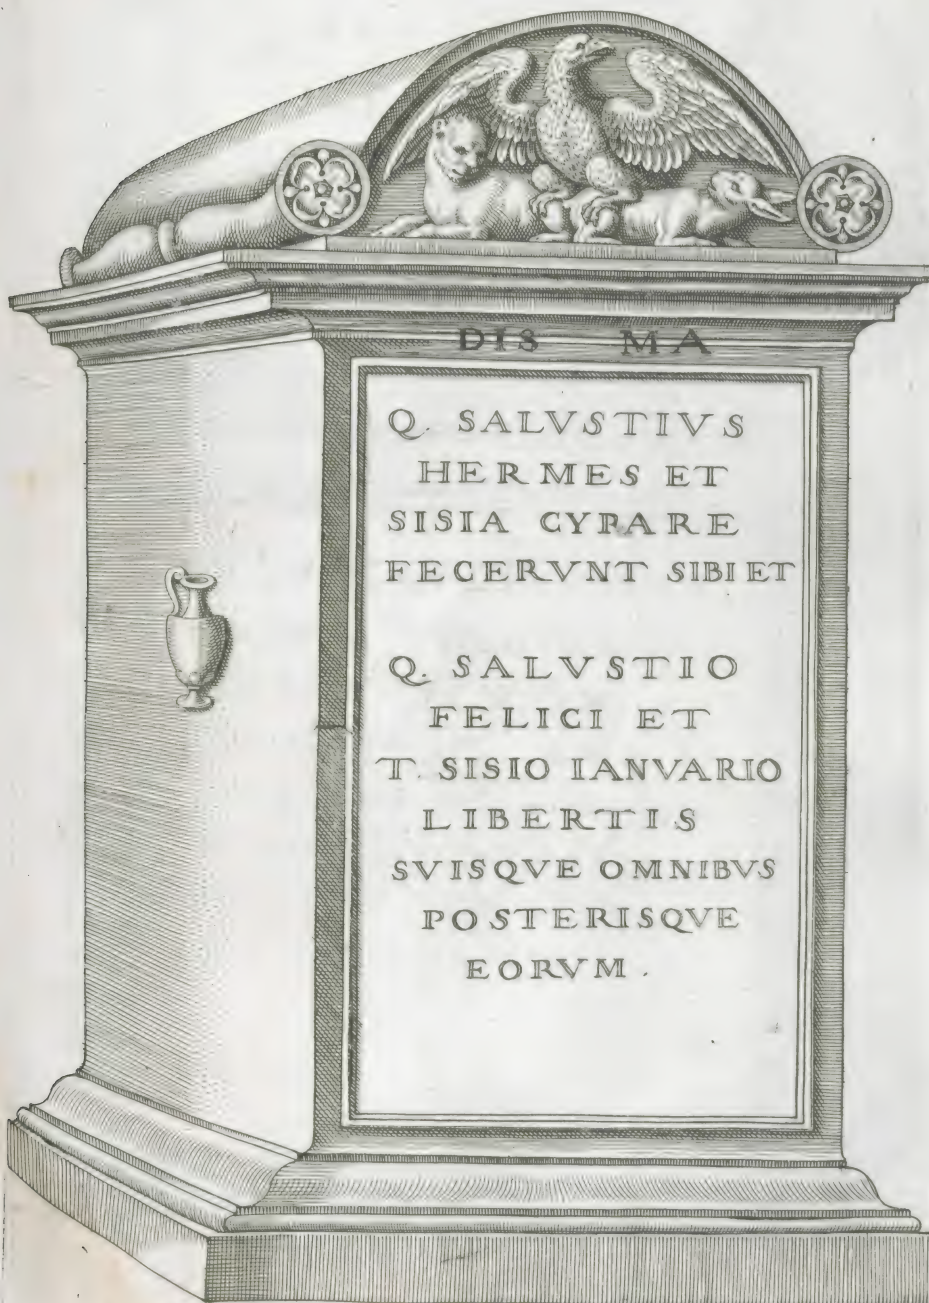 DIS MA
Q. SALVSTIVS
HERMES ET
SISIA CYPARE
FECERVNT SIBI ET
Q. SALVSTIO
FELICI ET
T. SISIO IANVARIO
LIBERTIS
SVISQVE OMNIBVS
POSTERISQVE
EORVM .